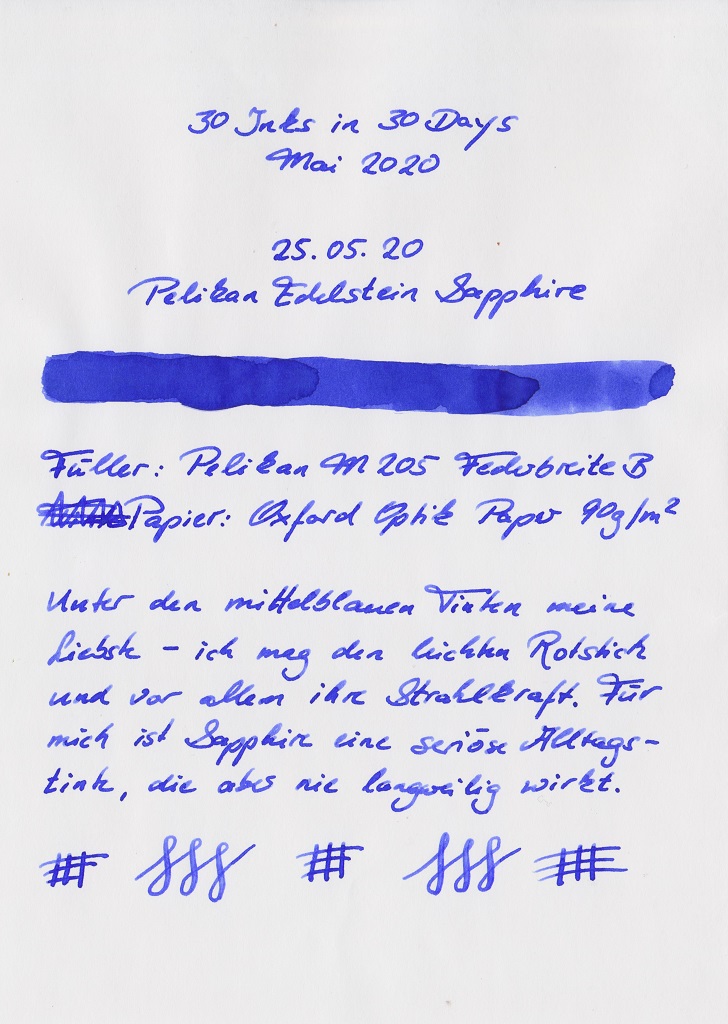 30 Inks in 30 Days
Mai 2020
25.05.20
Pelikan Edelstein Sapphire
Füller: Pelikan M 205 Federbreite B
Papier: Oxford Optik Paper 90g/m²
Unter den mittelblauen Tinten meine
Liebste – ich mag den leichten Rotstich
und vor allem ihre Strahlkraft. Für
mich ist Sapphire eine seriöse Alltags-
tinte, die aber nie langweilig wirkt.